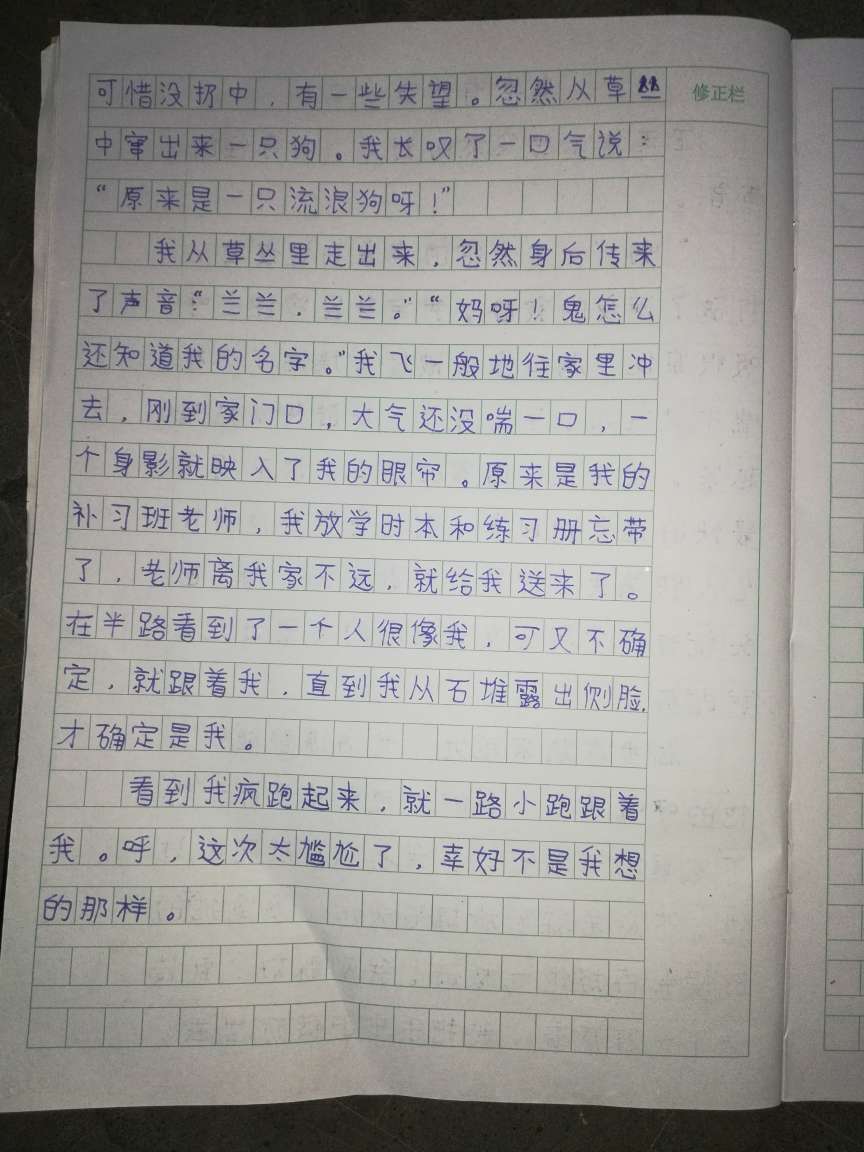 可惜没扔中，有一些失望。忽然从草丛
修正栏
中窜出来一只狗。我长叹了一口气说：
“原来是一只流浪狗呀！”
我从草丛里走出来，忽然身后传来
了声音：“兰兰，兰兰。”“妈呀！鬼怎么
还知道我的名字。”我飞一般地往家里冲
去，刚到家门口，大气还没喘一口，一
个身影就映入了我的眼帘。原来是我的
补习班老师，我放学时本和练习册忘带
了，老师离我家不远，就给我送来了。
在半路看到了一个人很像我，可又不确
定，就跟着我，直到我从石堆露出侧脸，
才确定是我。
看到我疯跑起来，就一路小跑跟着
我。呼，这次太尴尬了，幸好不是我想
的那样。